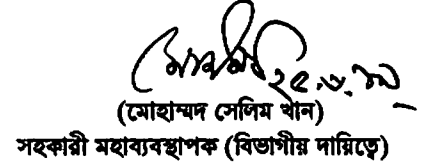 (মোহাম্মদ সেলিম খান)
সহকারী মহাব্যবস্থাপক (বিভাগীয় দায়িত্বে)